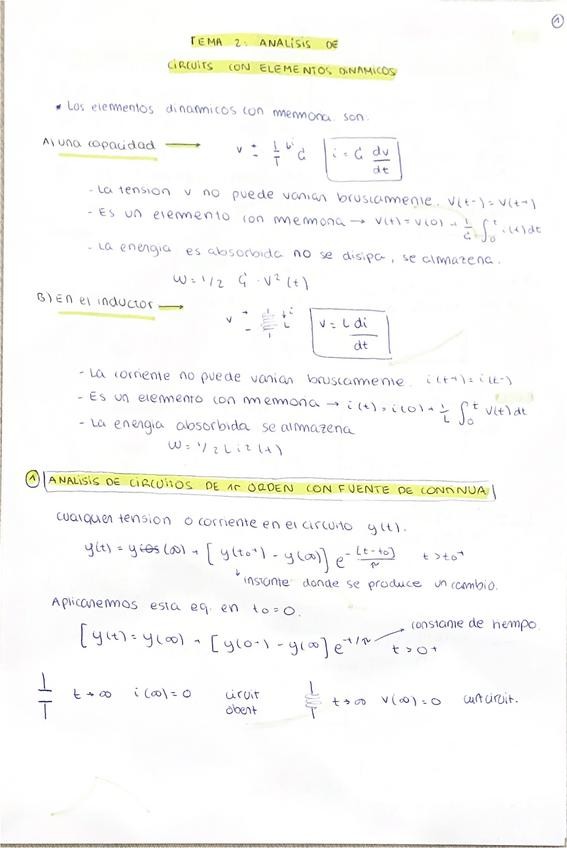 1
TEMA 2: ANALÍSIS DE
CIRCUITS CON ELEMENTOS DINAMICOS
• Los elementos dinamicos con memoria son:
A) una capacidad → v + - i C i = C dv/dt
- La tension v no puede variar bruscamente. v(t-) = v(t+)
- Es un elemento con memoria → v(t) = v(0) + 1/C ∫₀ᵗ i(t)dt
- La energia es absorbida no se disipa, se almacena.
W = 1/2 C · V²(t)
B) En el inductor → v + - i L v = L di/dt
- La corriente no puede variar bruscamente. i(t+) = i(t-)
- Es un elemento con memoria → i(t) = i(0) + 1/L ∫₀ᵗ v(t)dt
- La energia absorbida se almacena
W = 1/2 L i²(t)
1 ANALISIS DE CIRCUITOS DE 1r ORDEN CON FUENTE DE CONTINUA
cualquier tension o corriente en el circuito y(t).
y(t) = y(∞) + [y(to+) - y(∞)] e^-(t-to)/τ t > to+
instante donde se produce un cambio.
Aplicaremos esta eq. en to = 0.
[y(t) = y(∞) + [y(0+) - y(∞)] e^-t/τ → constante de tiempo.
t > 0+
t → ∞ i(∞) = 0 circuit obert
t → ∞ v(∞) = 0 curtcircuit.